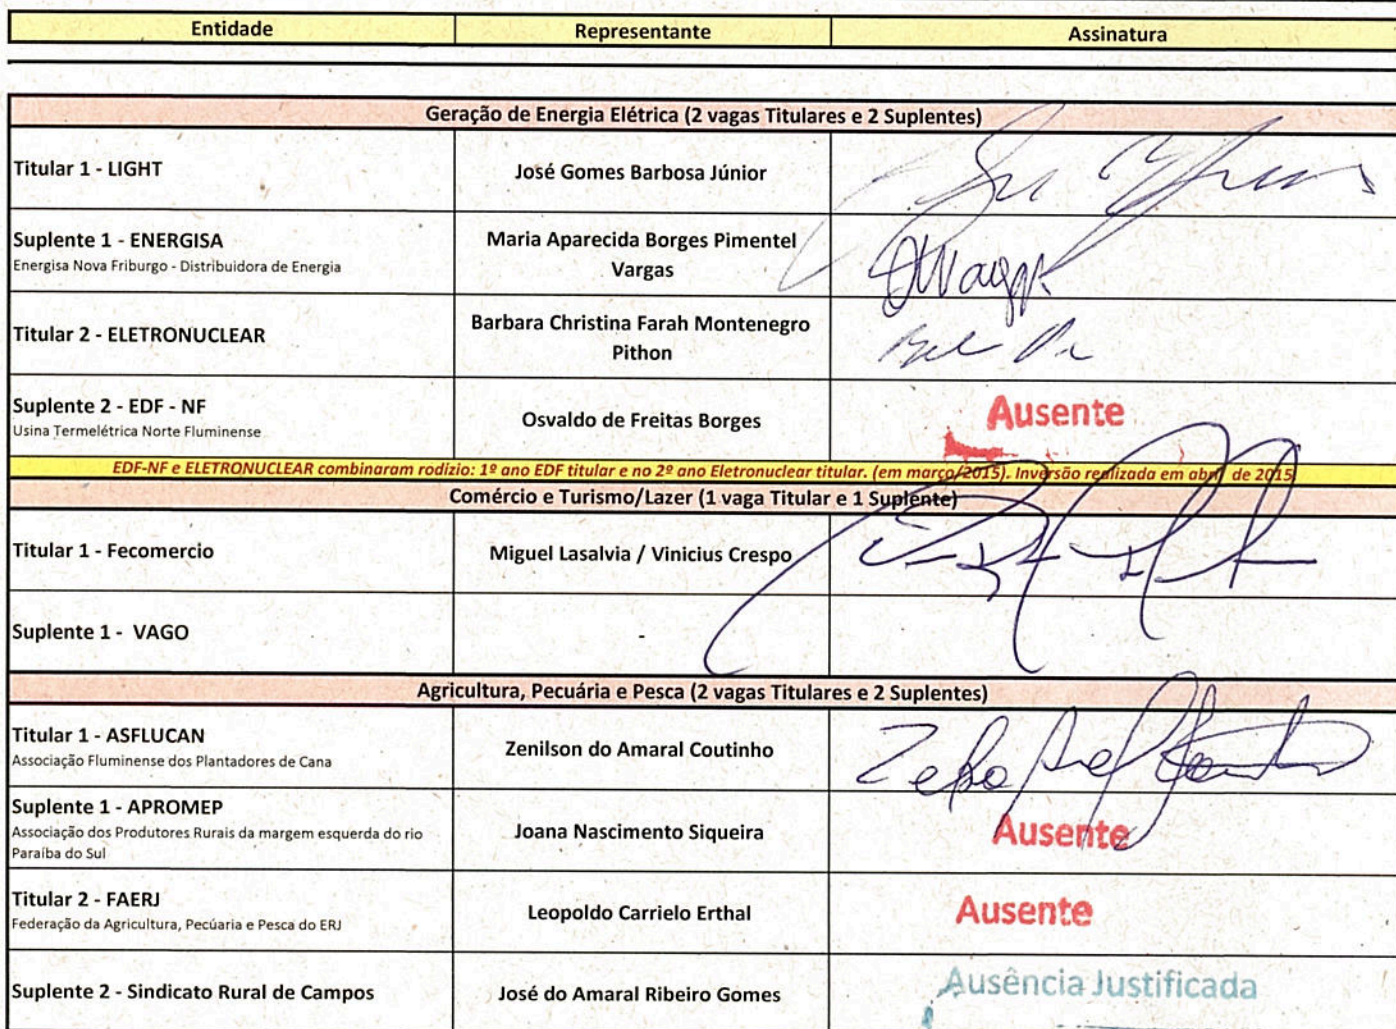 Entidade Representante Assinatura
Geração de Energia Elétrica (2 vagas Titulares e 2 Suplentes)
Titular 1 - LIGHT José Gomes Barbosa Júnior
Suplente 1 - ENERGISA
Energisa Nova Friburgo - Distribuidora de Energia
Maria Aparecida Borges Pimentel
Vargas
Titular 2 - ELETRONUCLEAR
Barbara Christina Farah Montenegro
Pithon
Suplente 2 - EDF - NF
Usina Termelétrica Norte Fluminense
Osvaldo de Freitas Borges
Ausente
EDF-NF e ELETRONUCLEAR combinaram rodízio: 1º ano EDF titular e no 2º ano Eletronuclear titular. (em março/2015). Inversão realizada em abril de 2015
Comércio e Turismo/Lazer (1 vaga Titular e 1 Suplente)
Titular 1 - Fecomercio Miguel Lasalvia / Vinicius Crespo
Suplente 1 - VAGO -
Agricultura, Pecuária e Pesca (2 vagas Titulares e 2 Suplentes)
Titular 1 - ASFLUCAN
Associação Fluminense dos Plantadores de Cana
Zenilson do Amaral Coutinho
Suplente 1 - APROMEP
Associação dos Produtores Rurais da margem esquerda do rio
Paraíba do Sul
Joana Nascimento Siqueira
Ausente
Titular 2 - FAERJ
Federação da Agricultura, Pecúaria e Pesca do ERJ
Leopoldo Carrielo Erthal
Ausente
Suplente 2 - Sindicato Rural de Campos José do Amaral Ribeiro Gomes
Ausência Justificada